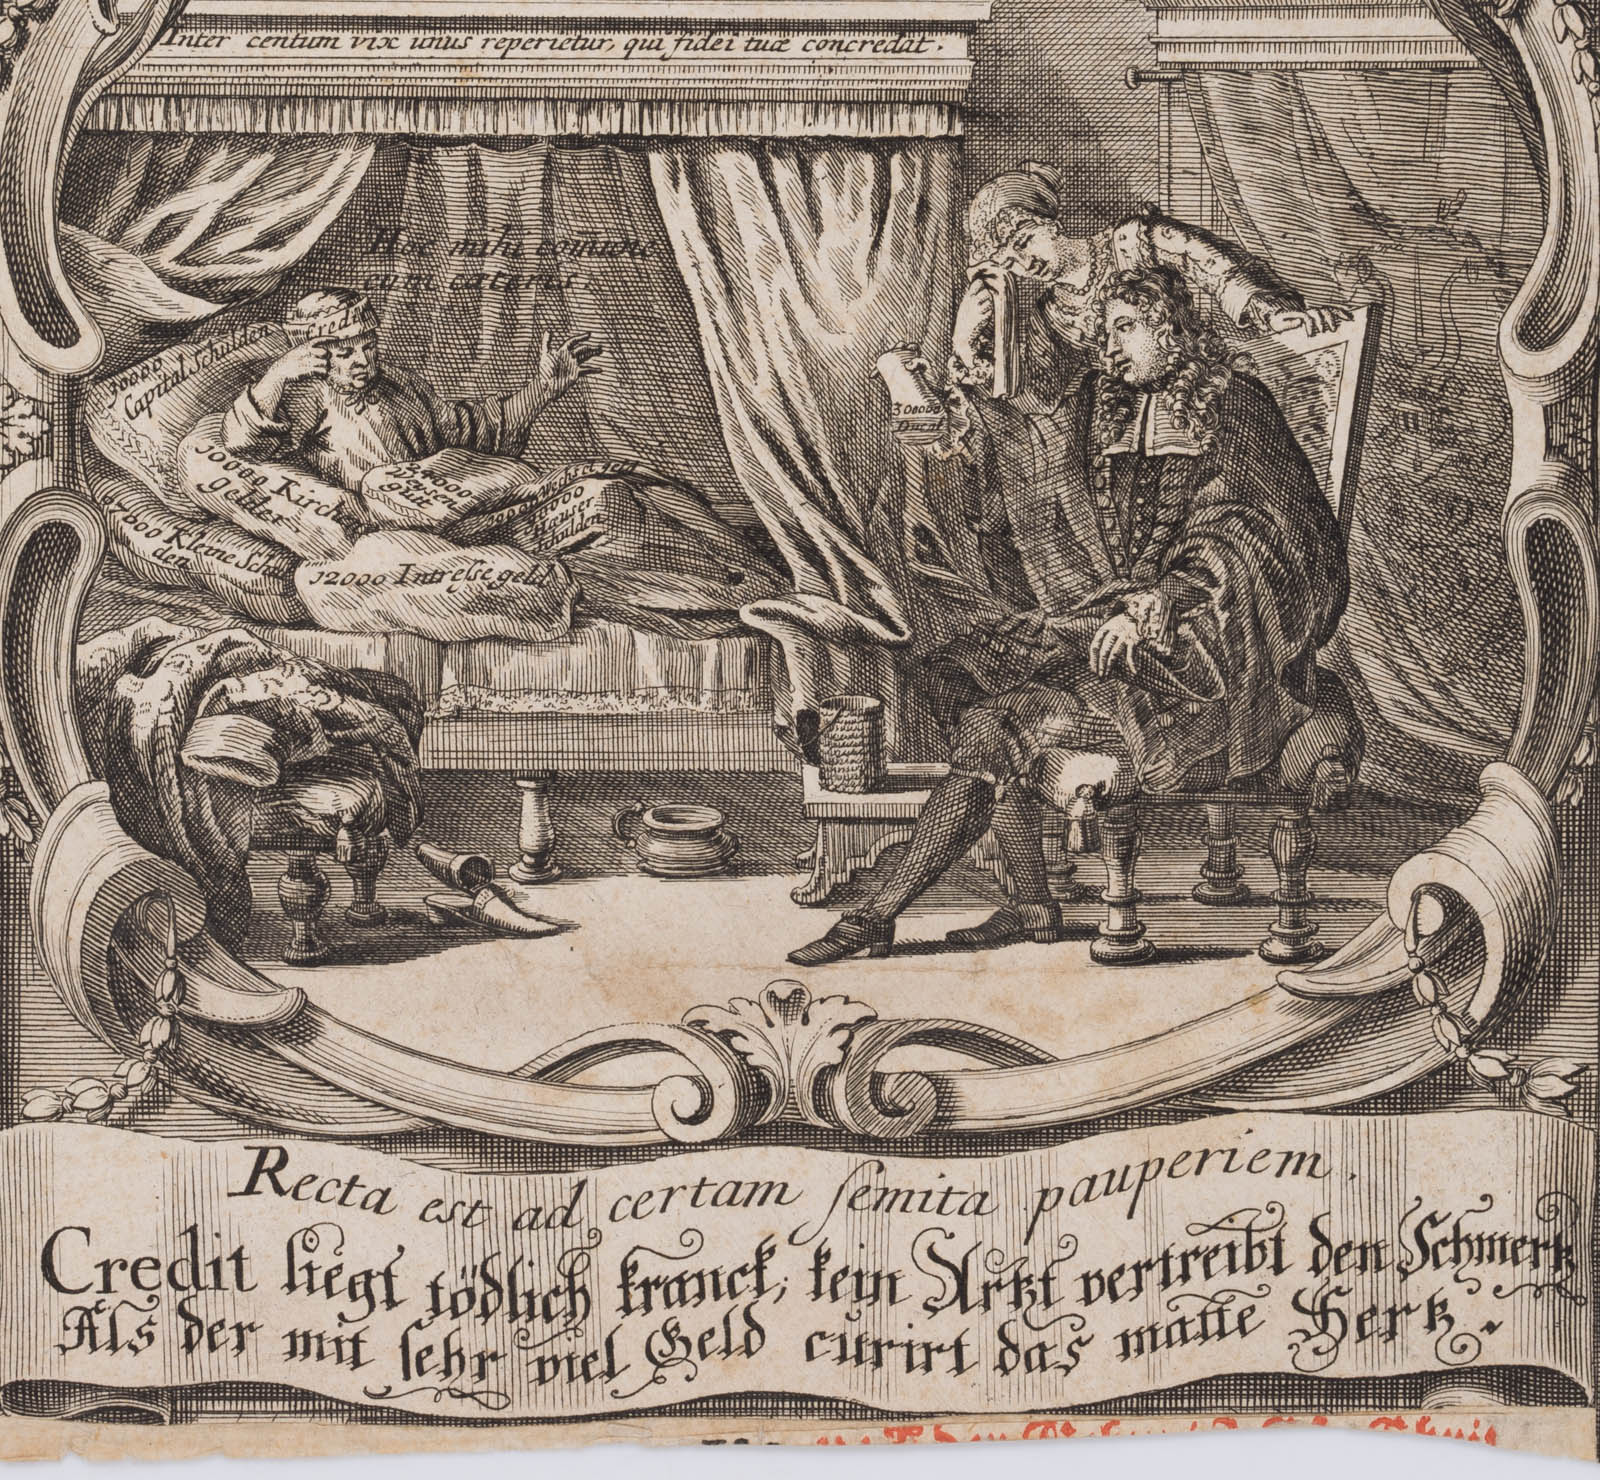 Inter centum vix unus reperietur, qui fidei tuæ concredat.
Hoc mihi comune
cum cæteris.
Credit
30000
Capital Schulden
10000 Kirch
gelder
7000 Kleine Schul
den
12000 Intresse geld
24000
Wechsel geld
Hæuser
Schulden
30000
Ducat
Recta est ad certam semita pauperiem.
Credit liegt tödlich kranck, kein Artzt vertreibt den Schmertz
Als der mit sehr viel Geld curirt das matte Hertz.